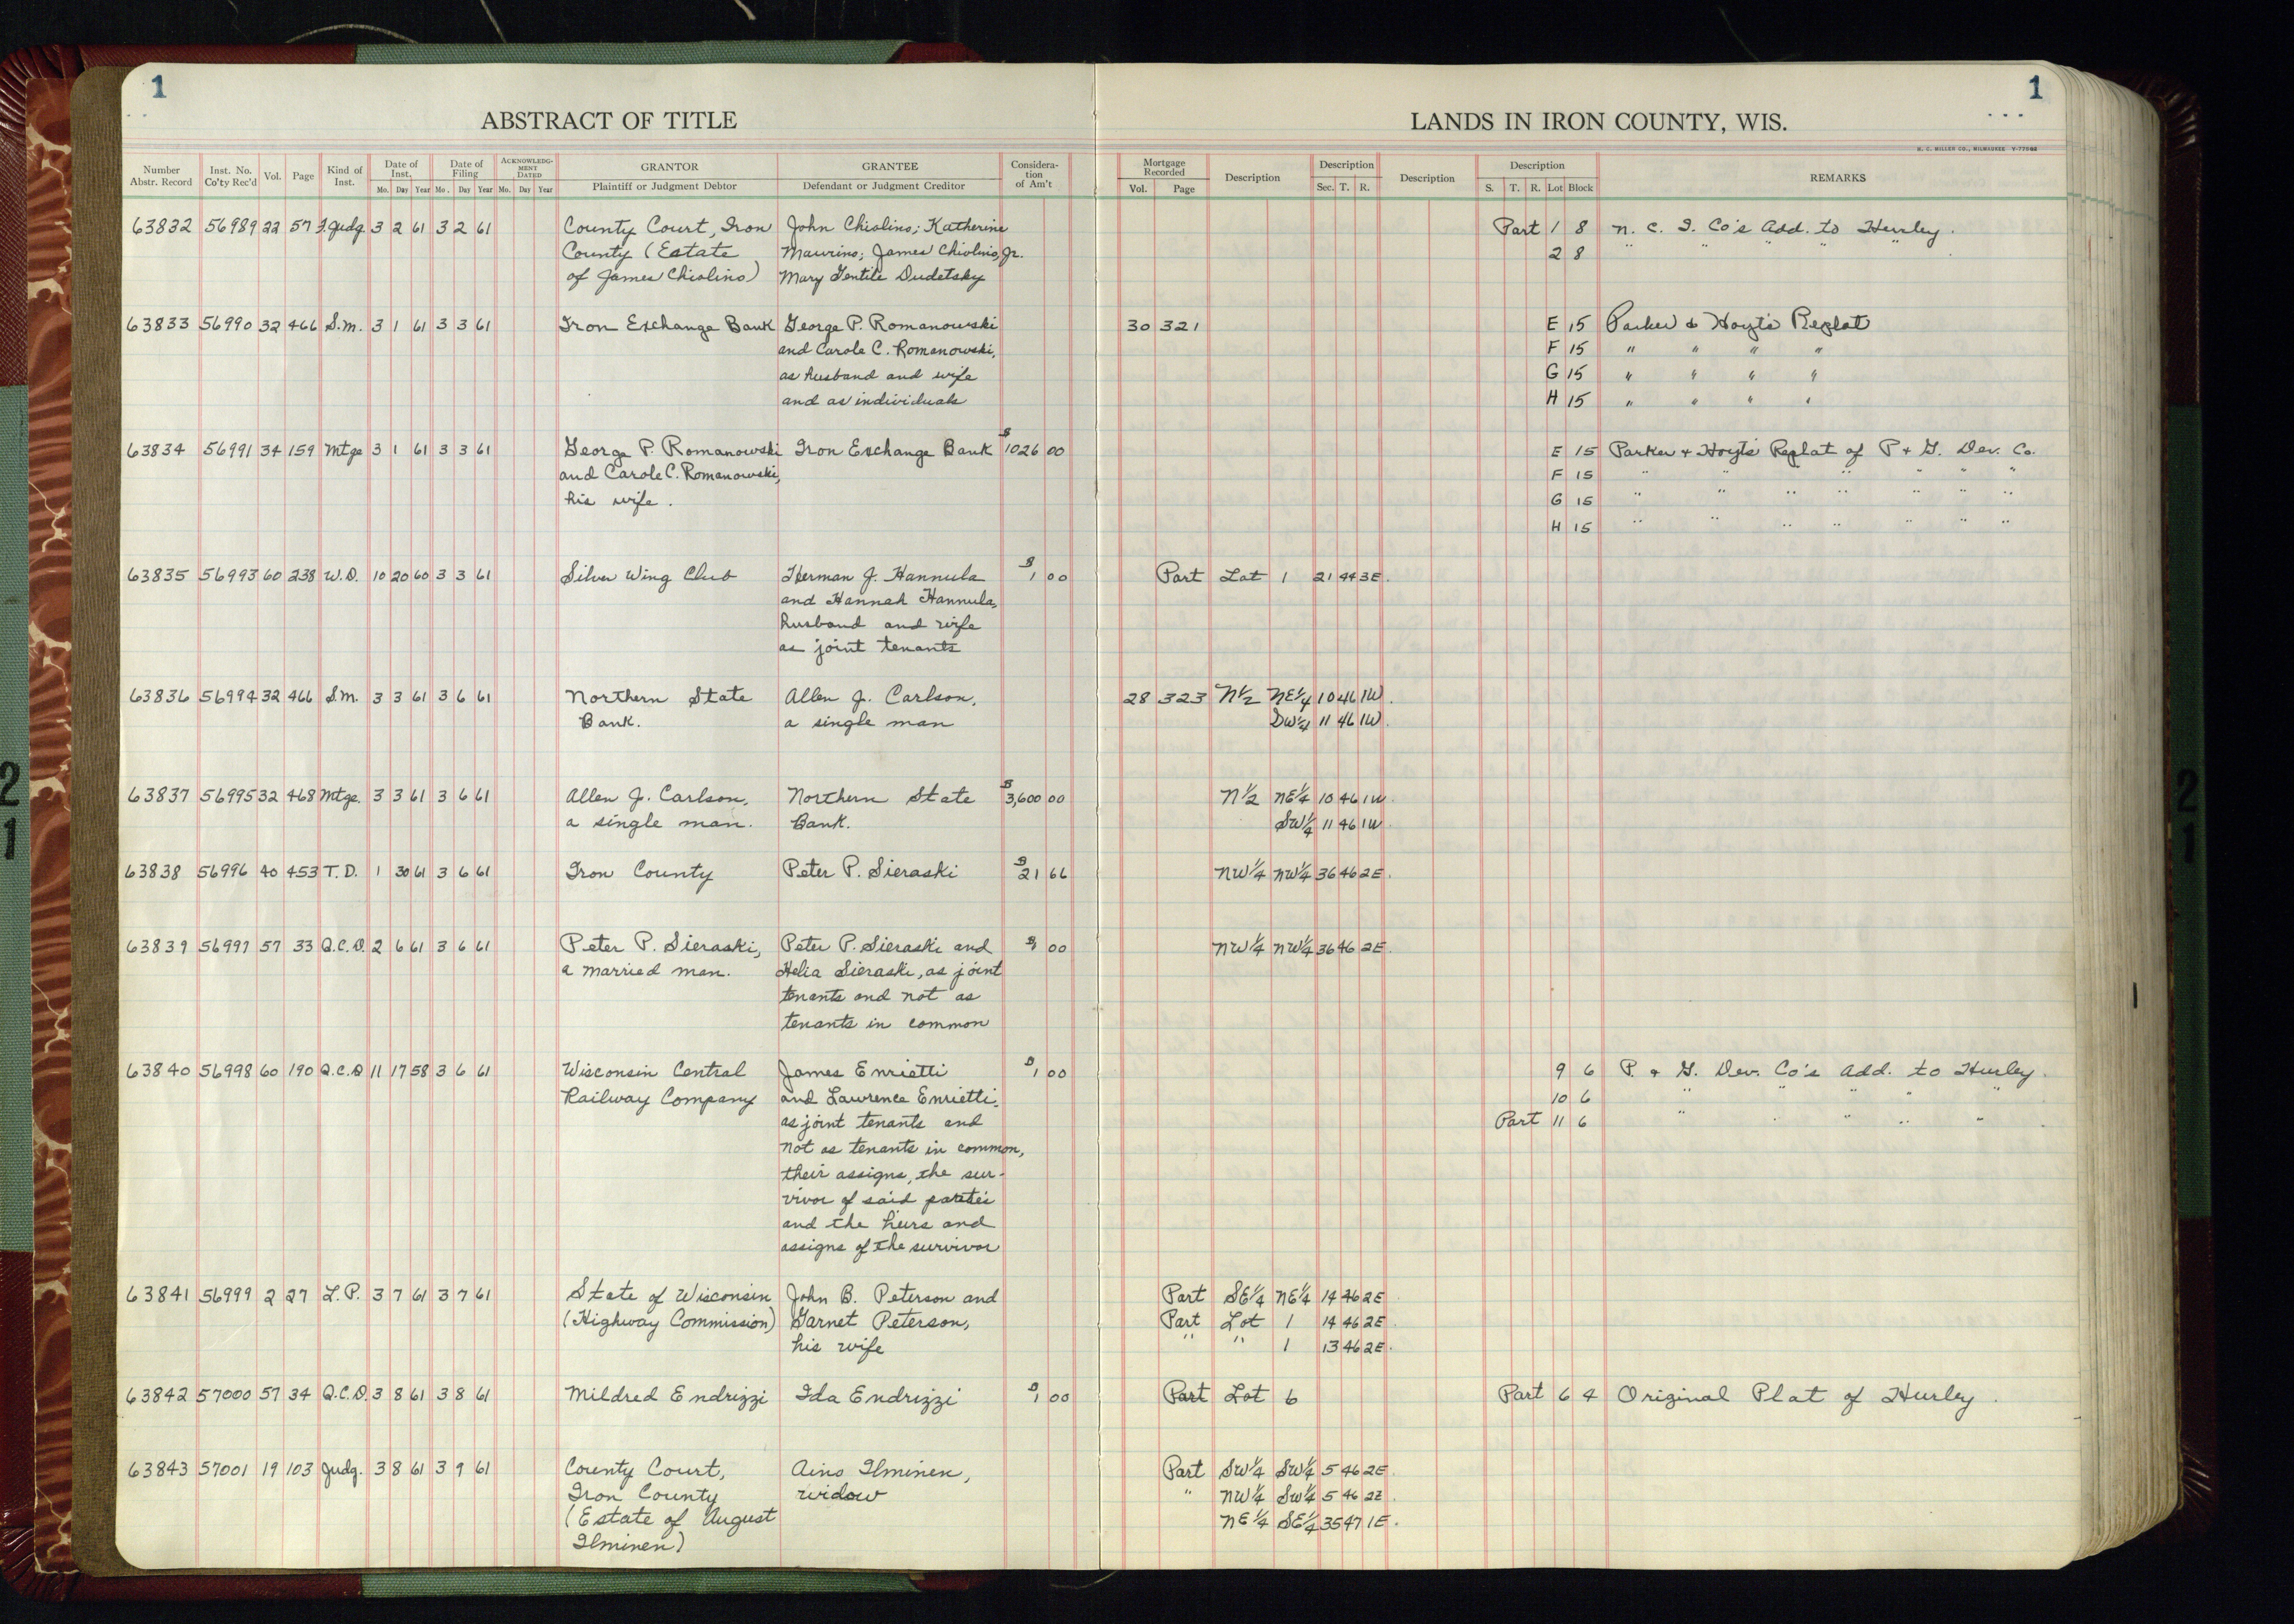 1
1
ABSTRACT OF TITLE
LANDS IN IRON COUNTY, WIS.
H. C. MILLER CO., MILWAUKEE
Number Abstr. Record Inst. No. Co'ty Rec'd Vol. Page Kind of Inst. Date of Inst. Mo. Day Year Date of Filing Mo. Day Year ACKNOWLEDGMENT DATED Mo. Day Year GRANTOR Plaintiff or Judgment Debtor GRANTEE Defendant or Judgment Creditor Consideration of Am't Mortgage Recorded Vol. Page Description Description Sec. T. R. Description Description S. T. R. Lot Block REMARKS
63832 56989 22 57 F. Judg. 3 2 61 3 2 61 County Court, Iron John Chiolino; Katherine Part 1 8 N. C. I. Co's Add. to Hurley.
County (Estate Maurino; James Chiolino, Jr. 2 8 " " " " "
of James Chiolino) Mary Gentile Dudetsky
63833 56990 32 466 S.M. 3 1 61 3 3 61 Iron Exchange Bank George P. Romanowski 30 321 E 15 Parker & Hoyt's Replat
and Carole C. Romanowski, F 15 " " " "
as husband and wife G 15 " " " "
and as individuals H 15 " " " "
63834 56991 34 159 Mtge 3 1 61 3 3 61 George P. Romanowski Iron Exchange Bank $1026 00 E 15 Parker + Hoyt's Replat of P + G. Dev. Co.
and Carole C. Romanowski, F 15 " " " " " " "
his wife. G 15 " " " " " " "
H 15 " " " " " " "
63835 56993 60 238 W.D. 10 20 60 3 3 61 Silver Wing Club Herman J. Hannula $1 00 Part Lot 1 21 44 3E.
and Hannah Hannula,
husband and wife
as joint tenants
63836 56994 32 466 S.M. 3 3 61 3 6 61 Northern State Allen J. Carlson, 28 323 N½ NE¼ 10 46 1W.
Bank. a single man SW¼ 11 46 1W.
63837 56995 32 468 Mtge. 3 3 61 3 6 61 Allen J. Carlson, Northern State $3,600 00 N½ NE¼ 10 46 1W.
a single man. Bank. SW¼ 11 46 1W
63838 56996 40 453 T. D. 1 30 61 3 6 61 Iron County Peter P. Sieraski $21 66 NW¼ NW¼ 36 46 2E.
63839 56997 57 33 Q.C.D. 2 6 61 3 6 61 Peter P. Sieraski, Peter P. Sieraski and $1 00 NW¼ NW¼ 36 46 2E.
a married man. Helia Sieraski, as joint
tenants and not as
tenants in common
63840 56998 60 190 Q.C.D 11 17 58 3 6 61 Wisconsin Central James Enrietti $1 00 9 6 P. + G. Dev. Co's Add. to Hurley.
Railway Company and Lawrence Enrietti, 10 6 " " " "
as joint tenants and Part 11 6 " " " "
not as tenants in common,
their assigns, the sur-
vivor of said parties
and the heirs and
assigns of the survivor
63841 56999 2 27 L.P. 3 7 61 3 7 61 State of Wisconsin John B. Peterson and Part SE¼ NE¼ 14 46 2E.
(Highway Commission) Garnet Peterson, Part Lot 1 14 46 2E.
his wife " " 1 13 46 2E.
63842 57000 57 34 Q.C.D. 3 8 61 3 8 61 Mildred Endrizzi Ida Endrizzi $1 00 Part Lot 6 Part 6 4 Original Plat of Hurley.
63843 57001 19 103 Judg. 3 8 61 3 9 61 County Court, Aino Ilminen, Part SW¼ SW¼ 5 46 2E.
Iron County widow " NW¼ SW¼ 5 46 2E.
(Estate of August NE¼ SE¼ 35 47 1E.
Ilminen)